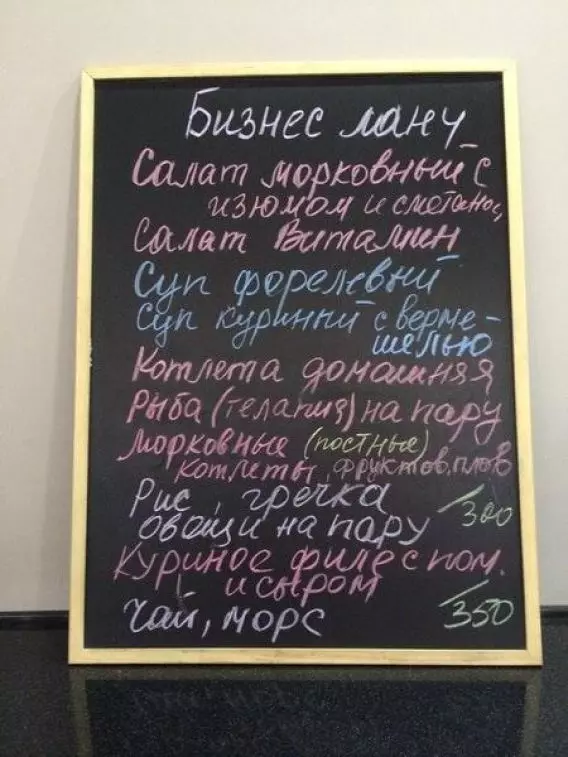 Бизнес ланч
Салат морковный с
изюмом и сметаной
Салат Витамин
Суп форелевый
Суп куриный с верме-
шелью
Котлета домашняя
Рыба (телапия) на пару
морковные (постные)
котлеты, фруктов.плов
Рис, гречка
овощи на пару 300
Куриное филе с пом.
и сыром
Чай, морс 350